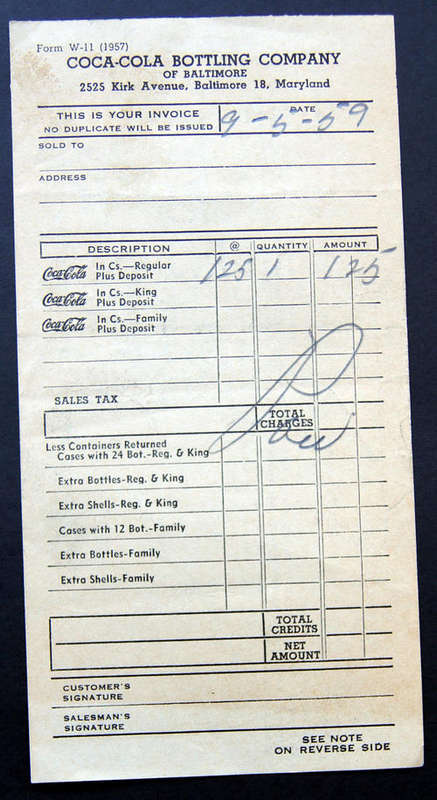 Form W-11 (1957)
COCA-COLA BOTTLING COMPANY
OF BALTIMORE
2525 Kirk Avenue, Baltimore 18, Maryland
THIS IS YOUR INVOICE
NO DUPLICATE WILL BE ISSUED
DATE
9-5-59
SOLD TO
ADDRESS
DESCRIPTION @ QUANTITY AMOUNT
Coca-Cola In Cs.—Regular
Plus Deposit 125 1 1 25
Coca-Cola In Cs.—King
Plus Deposit
Coca-Cola In Cs.—Family
Plus Deposit
SALES TAX
TOTAL
CHARGES
Less Containers Returned
Cases with 24 Bot.-Reg. & King
Extra Bottles-Reg. & King
Extra Shells-Reg. & King
Cases with 12 Bot.-Family
Extra Bottles-Family
Extra Shells-Family
TOTAL
CREDITS
NET
AMOUNT
CUSTOMER'S
SIGNATURE
SALESMAN'S
SIGNATURE
SEE NOTE
ON REVERSE SIDE